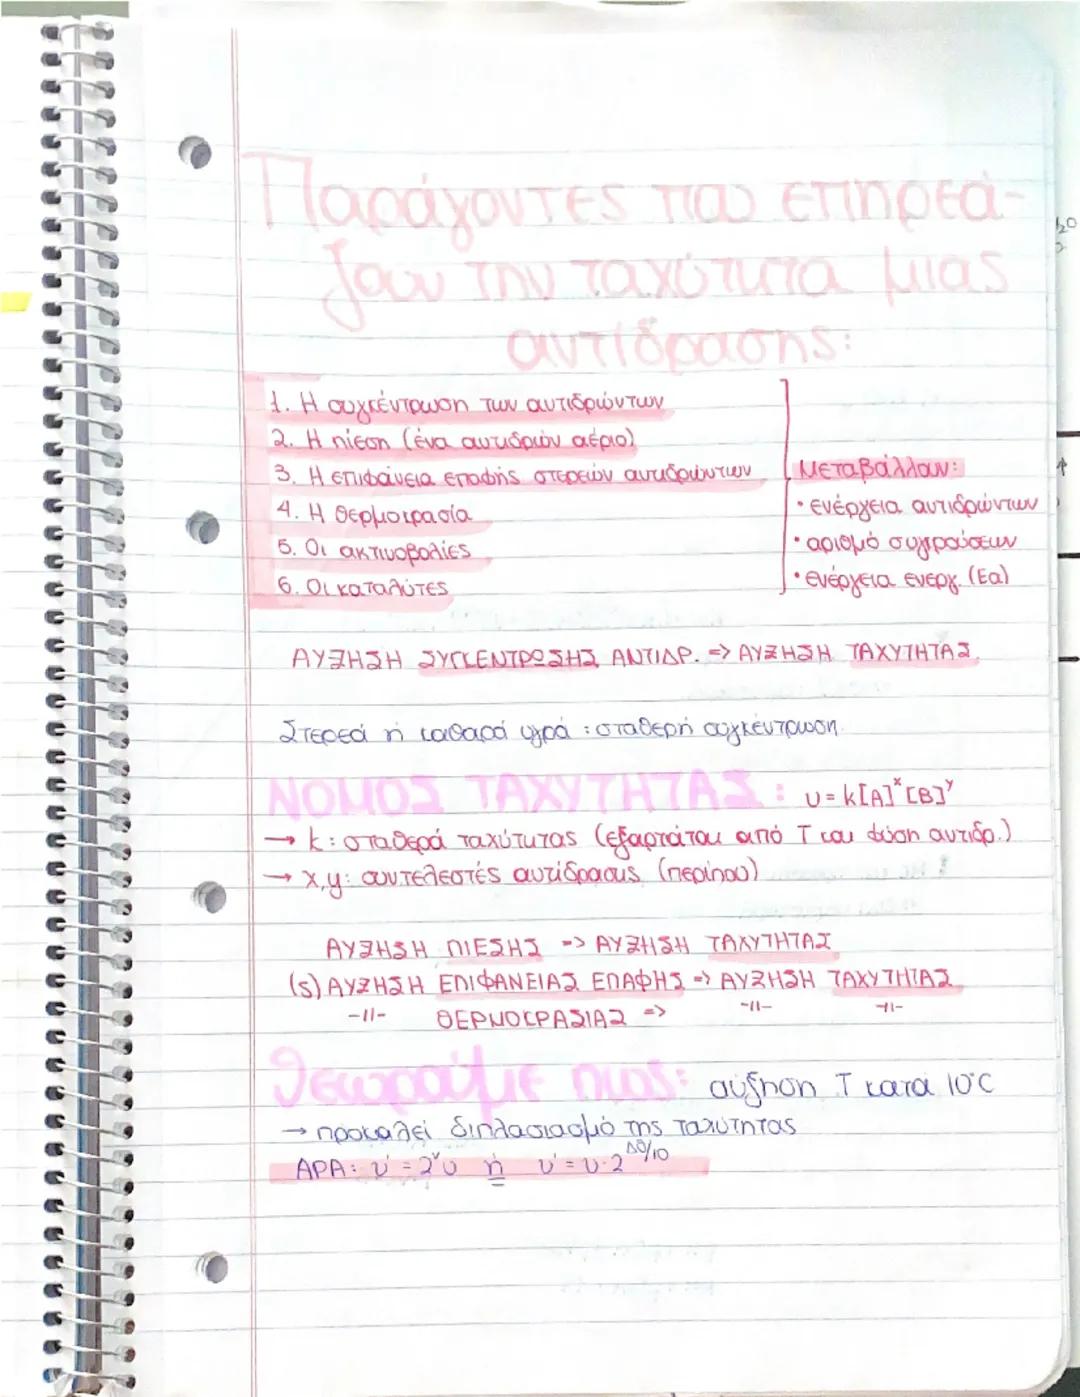 Παράγοντες που επηρεά-
ζουν την ταχύτητα μιας
αντίδρασης:
1. Η συγκέντρωση των αντιδρώντων
2. Η πίεση (ένα αντιδρών αέριο)
3. Η επιφάνεια επαφής στερεών αντιδρώντων
4. Η θερμοκρασία
5. Οι ακτινοβολίες
6. Οι καταλύτες
Μεταβάλλουν:
• ενέργεια αντιδρώντων
• αριθμό συγκρούσεων
• ενέργεια ενεργ. (Εα)
ΑΥΞΗΣΗ ΣΥΓΚΕΝΤΡΩΣΗΣ ΑΝΤΙΔΡ. => ΑΥΞΗΣΗ ΤΑΧΥΤΗΤΑΣ
Στερεά ή καθαρά υγρά : σταθερή συγκέντρωση.
ΝΟΜΟΣ ΤΑΧΥΤΗΤΑΣ: υ = k[A]ˣ[B]ʸ
→ k: σταθερά ταχύτητας (εξαρτάται από Τ και φύση αντιδρ.)
→ x,y: συντελεστές αντίδρασης (περίπου)
ΑΥΞΗΣΗ ΠΙΕΣΗΣ => ΑΥΞΗΣΗ ΤΑΧΥΤΗΤΑΣ
(s) ΑΥΞΗΣΗ ΕΠΙΦΑΝΕΙΑΣ ΕΠΑΦΗΣ => ΑΥΞΗΣΗ ΤΑΧΥΤΗΤΑΣ
-//- ΘΕΡΜΟΚΡΑΣΙΑΣ => -//- -//-
Θεωρούμε πως: αύξηση Τ κατά 10°C
→ προκαλεί διπλασιασμό της ταχύτητας
ΑΡΑ: υ' = 2ᵛυ ή υ' = υ·2^Δθ/10